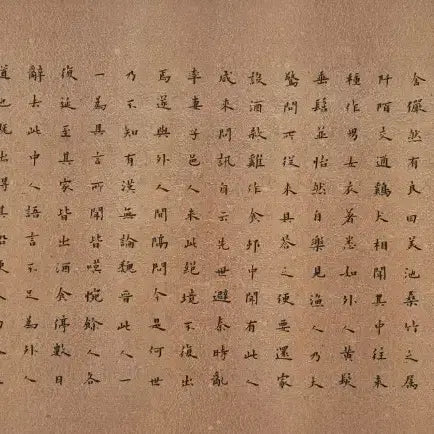 舍儼然有良田美池桑竹之屬
阡陌交通鷄犬相聞其中往來
種作男女衣著悉如外人黃髮
垂髫並怡然自樂見漁人乃大
驚問所從來具答之便要還家
設酒殺雞作食邨中聞有此人
咸來問訊自云先世避秦時亂
率妻子邑人來此絕境不復出
焉遂與外人間隔問今是何世
乃不知有漢無論魏晉此人一
一為具言所聞皆嘆惋餘人各
復延至其家皆出酒食停數日
辭去此中人語言不足為外人
道也既出得其船便